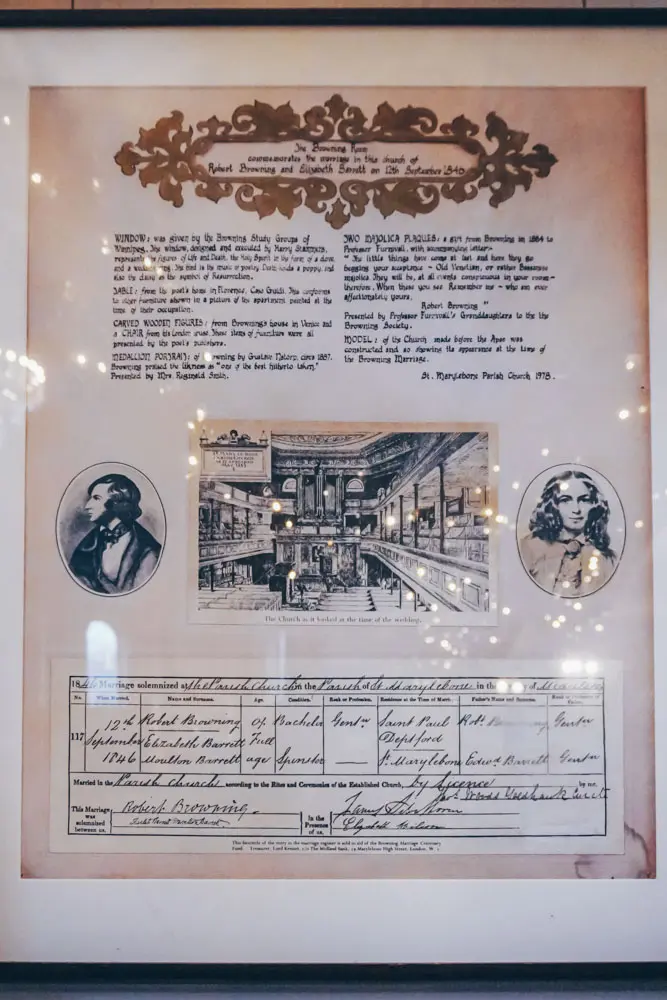 The Browning Room
commemorates the marriage in this church of
Robert Browning and Elizabeth Barrett on 12th September 1846
WINDOW: was given by the Browning Study Groups of
Winnipeg. The window, designed and executed by Harry Stammers,
represents the figures of Life and Death, the Holy Spirit in the form of a dove,
and a wedding ring. The bird is the music of poetry. Death holds a poppy, and
also the as the symbol of Resurrection.
TABLE: from the poet's home in Florence, Casa Guidi. This conforms
to other furniture shown in a picture of the apartment painted at the
time of their occupation.
CARVED WOODEN FIGURES: from Browning's house in Venice and
a CHAIR from his London house. These items of furniture were all
presented by the poet's publishers.
MEDALLION PORTRAIT: of Browning by Gustav Natorp, circa 1887.
Browning praised the likeness as "one of the best hitherto taken."
Presented by Mrs. Reginald Smith.
TWO MAJOLICA PLAQUES: a gift from Browning in 1884 to
Professor Furnivall, with accompanying letter:-
"The little things have come at last and here they go
begging your acceptance - Old Venetian, or rather Bassanese
majolica. They will be, at all events conspicuous in your room -
therefore, When these you see Remember me - who am ever
affectionately yours,
Robert Browning "
Presented by Professor Furnivall's Granddaughters to the the
Browning Society.
MODEL: of the Church made before the Apse was
constructed and so showing its appearance at the time of
the Browning Marriage.
St. Marylebone Parish Church 1978.
The Church as it looked at the time of the wedding.
1846 Marriage solemnized at the Parish Church in the Parish of St Marylebone in the of Middlesex
No. When Married. Name and Surname. Age. Condition. Rank or Profession. Residence at the Time of Marri. Father's Name and Surname. Rank or Profession of Father.
117 12th September 1846 Robert Browning Of Bachelor Gentn Saint Paul Deptford Robt Browning Gentn
Elizabeth Barrett Moulton Barrett Full age Spinster — St Marylebone Edwd Barrett Gentn
Married in the Parish Church according to the Rites and Ceremonies of the Established Church, by Licence by me,
This Marriage was solemnized between us,
Robert Browning
In the Presence of us,
James Silverthorne
Elizabeth Wilson
This facsimile of the entry in the marriage register is sold in aid of the Browning Marriage Centenary
Fund. Treasurer, Lord Kennet, c/o The Midland Bank, Marylebone High Street, London, W. 1